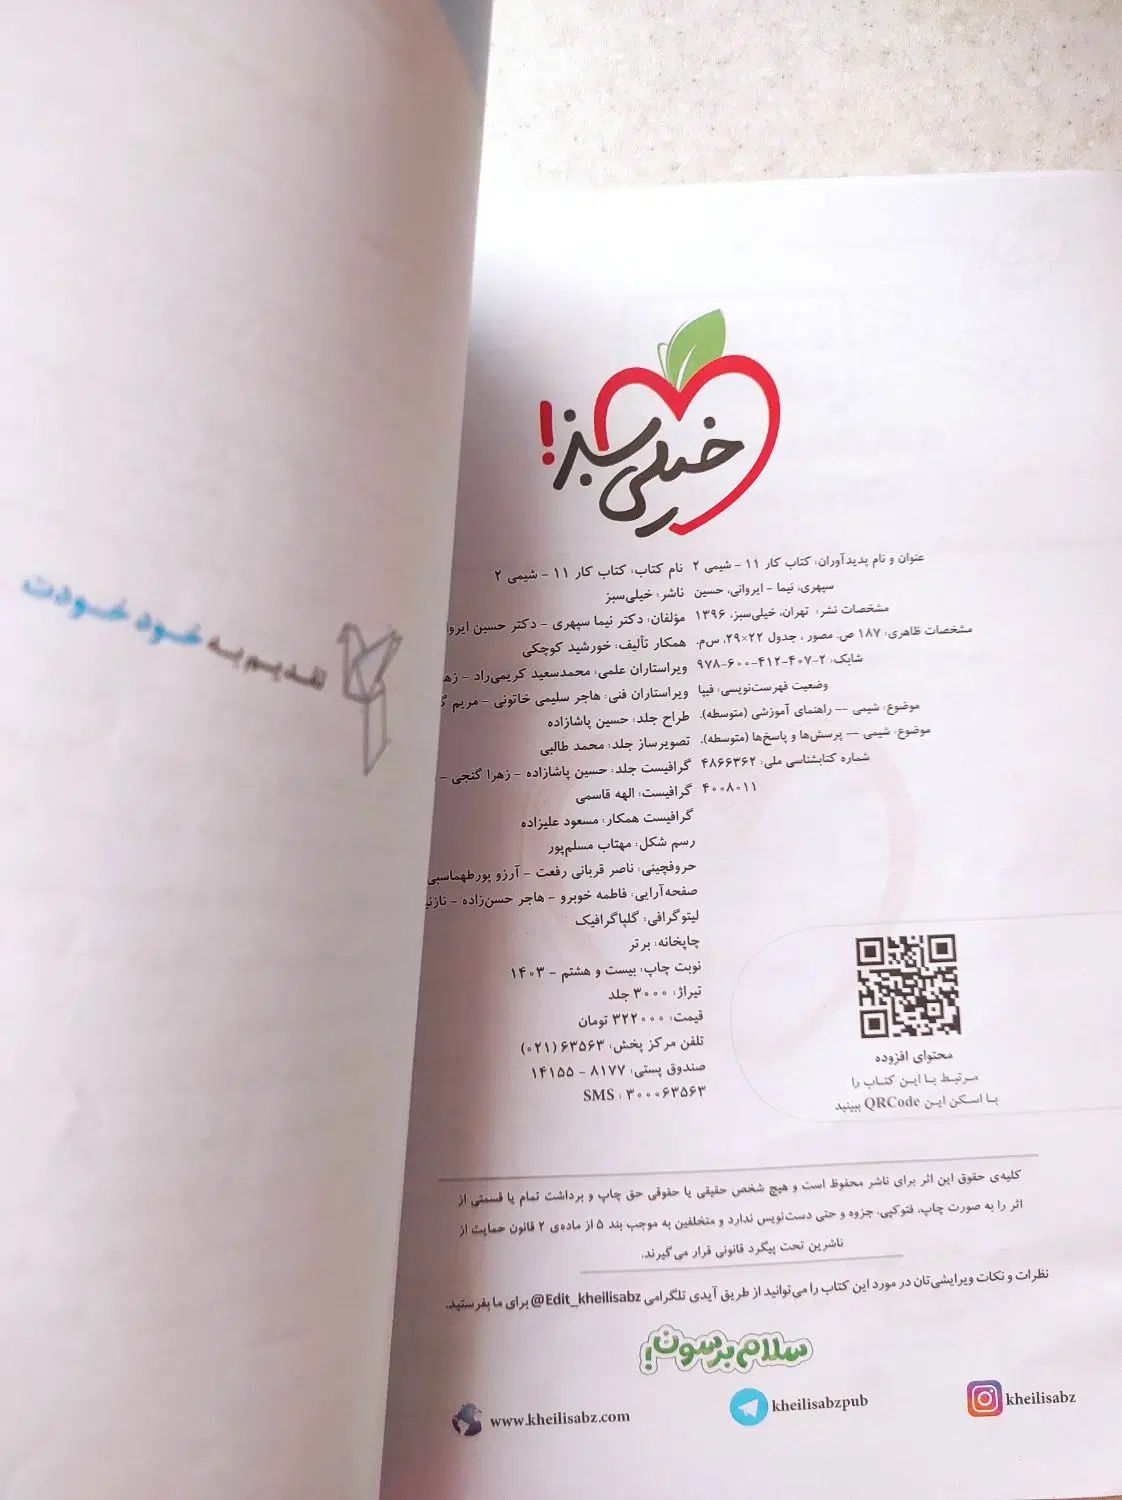 خیلی سبز!
عنوان و نام پدیدآوران: کتاب کار ۱۱ - شیمی ۲
سپهری، نیما - ایروانی، حسین
مشخصات نشر: تهران، خیلی‌سبز، ۱۳۹۶
مشخصات ظاهری: ۱۸۷ ص. مصور، جدول ۲۲×۲۹، س‌م.
شابک: ۲-۴۰۷-۴۱۲-۶۰۰-۹۷۸
وضعیت فهرست‌نویسی: فیپا
موضوع: شیمی -- راهنمای آموزشی (متوسطه).
موضوع: شیمی -- پرسش‌ها و پاسخ‌ها (متوسطه).
شماره کتابشناسی ملی: ۴۸۶۶۳۶۲
۴۰۰۸۰۱۱
نام کتاب: کتاب کار ۱۱ - شیمی ۲
ناشر: خیلی‌سبز
مؤلفان: دکتر نیما سپهری - دکتر حسین
همکار تألیف: خورشید کوچکی
ویراستاران علمی: محمدسعید کریمی‌راد -
ویراستاران فنی: هاجر سلیمی خاتونی - مریم
طراح جلد: حسین پاشازاده
تصویرساز جلد: محمد طالبی
گرافیست جلد: حسین پاشازاده - زهرا گنجی -
گرافیست: الهه قاسمی
گرافیست همکار: مسعود علیزاده
رسم شکل: مهتاب مسلم‌پور
حروفچینی: ناصر قربانی رفعت - آرزو پورطهماسبی
صفحه‌آرایی: فاطمه خوبرو - هاجر حسن‌زاده -
لیتوگرافی: گلپاگرافیک
چاپخانه: برتر
نوبت چاپ: بیست و هشتم - ۱۴۰۳
تیراژ: ۳۰۰۰ جلد
قیمت: ۳۲۲۰۰۰ تومان
تلفن مرکز پخش: ۶۳۵۶۳ (۰۲۱)
صندوق پستی: ۸۱۷۷ - ۱۴۱۵۵
SMS : ۳۰۰۰۶۳۵۶۳
محتوای افزوده
مرتبط با این کتاب را
با اسکن این QRCode ببینید
کلیه‌ی حقوق این اثر برای ناشر محفوظ است و هیچ شخص حقیقی یا حقوقی حق چاپ و برداشت تمام یا قسمتی از
اثر را به صورت چاپ، فتوکپی، جزوه و حتی دست‌نویس ندارد و متخلفین به موجب بند ۵ از ماده‌ی ۲ قانون حمایت از
ناشرین تحت پیگرد قانونی قرار می‌گیرند.
نظرات و نکات ویرایشی‌تان در مورد این کتاب را می‌توانید از طریق آیدی تلگرامی @Edit_kheilisabz برای ما بفرستید.
سلام برسون!
kheilisabz
kheilisabzpub
www.kheilisabz.com
تقدیم به خود خودت